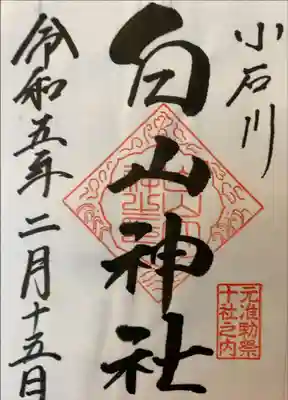 小石川
白山神社
元准勅祭
十社之内
令和五年二月十五日